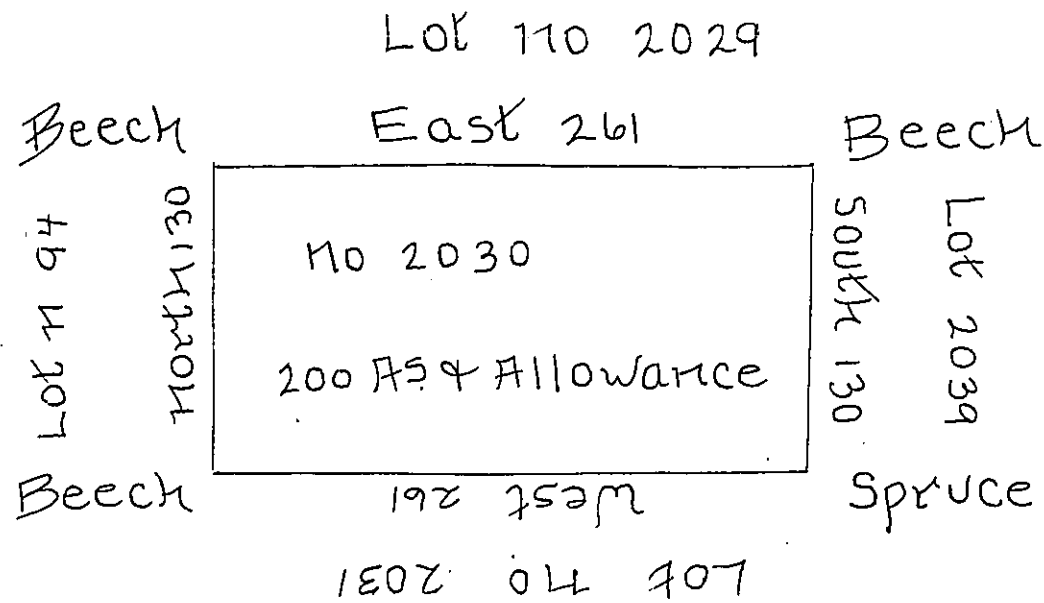 Lot no 2029
Beech East 261 Beech
Lot n 94
North 130
no 2030
200 As & Allowance
South 130
Lot 2039
Beech West 261 Spruce
Lot no 2031